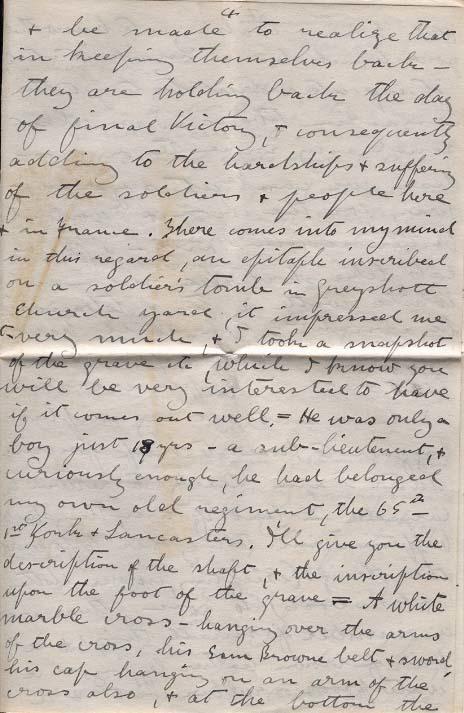 4
+ be made to realize that
in keeping themselves back –
they are holding back the day
of final Victory, + consequently
adding to the hardships + suffering
of the soldiers + people here
+ in France. There comes into my mind
in this regard, an epitaph inscribed
on a soldier's tomb in Greyshott
Church yard, it impressed me
very much, + I took a snapshot
of the grave etc, which I know you
will be very interested to have
if it comes out well. = He was only a
boy just 18 yrs – a sub-lieutenent, +
curiously enough, he had belonged
my own old regiment, the 65th –
1st York + Lancasters. I'll give you the
description of the shaft, + the inscription
upon the foot of the grave = A white
marble cross – hanging over the arms
of the cross, his Sam Browne belt + sword,
his cap hanging on an arm of the
cross also, + at the bottom the